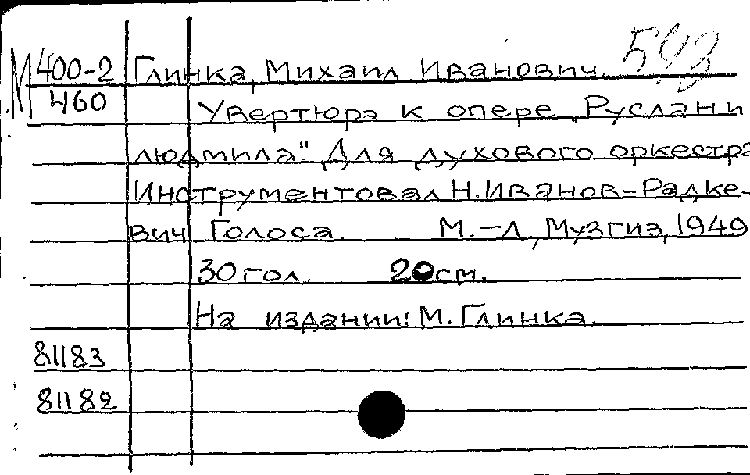 543
М 400-2 Глинка, Михаил Иванович.
460 Увертюра к опере „Руслан и
людмила" Для духового оркестра
Инструментовал Н. Иванов-Радке-
вич Голоса. М.-Л, Музгиз, 1949
30 гол. 20 см.
На издании: М. Глинка.
81183
81182